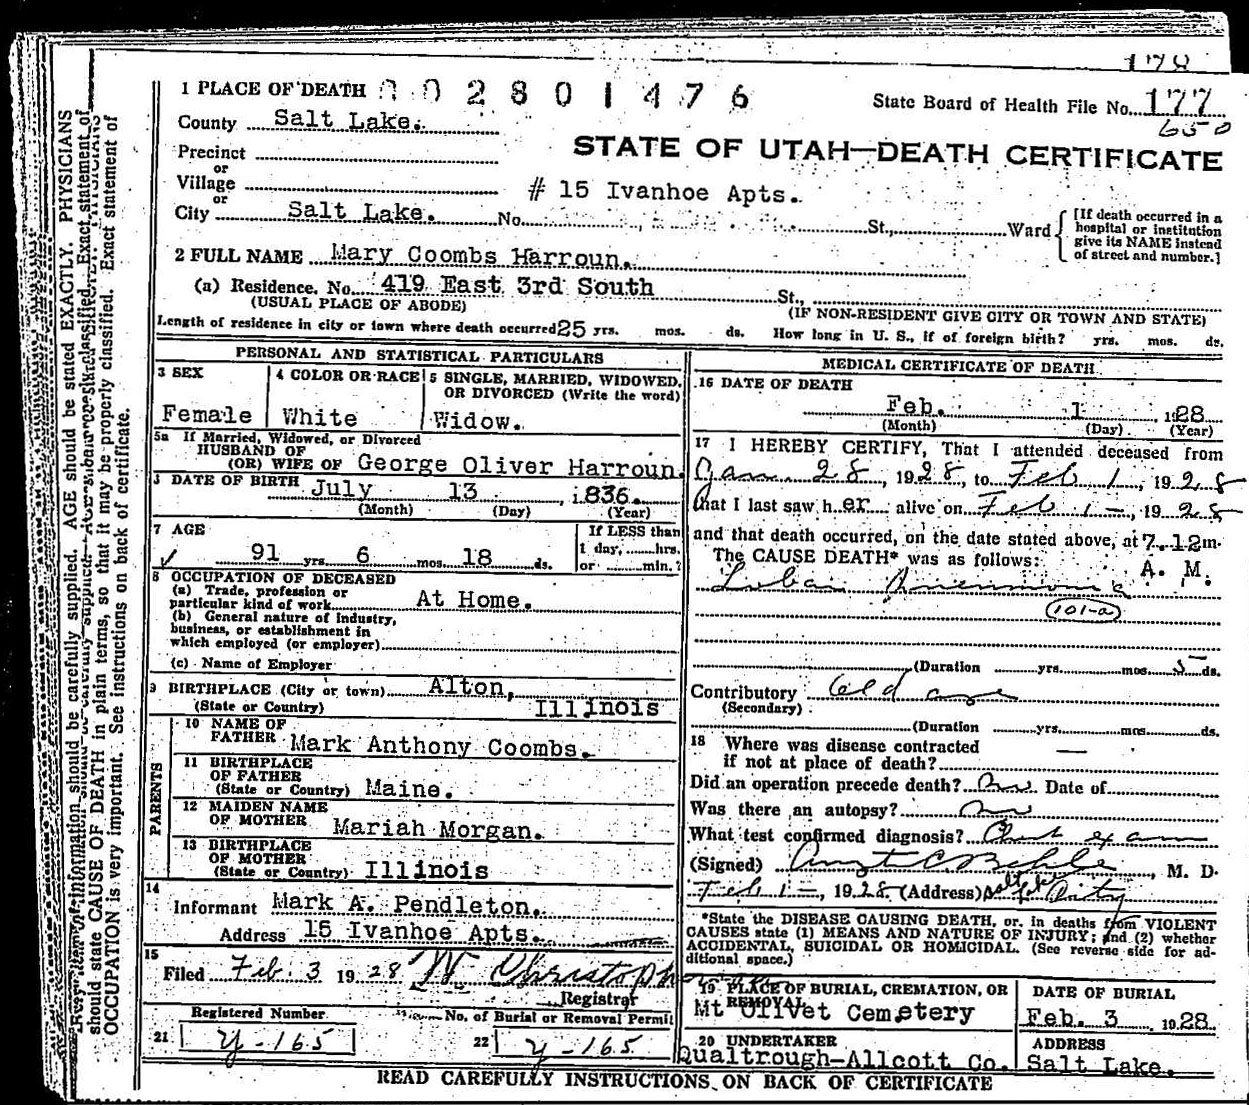 178
1 PLACE OF DEATH 002801476
State Board of Health File No. 177
650
County Salt Lake.
STATE OF UTAH—DEATH CERTIFICATE
Precinct
or
Village
# 15 Ivanhoe Apts.
or
City Salt Lake. No. St., Ward
[If death occurred in a
hospital or institution
give its NAME instead
of street and number.]
2 FULL NAME Mary Coombs Harroun.
(a) Residence. No. 419 East 3rd South St.,
(USUAL PLACE OF ABODE) (IF NON-RESIDENT GIVE CITY OR TOWN AND STATE)
Length of residence in city or town where death occurred 25 yrs. mos. ds. How long in U. S., if of foreign birth? yrs. mos. ds.
PERSONAL AND STATISTICAL PARTICULARS
3 SEX
Female
4 COLOR OR RACE
White
5 SINGLE, MARRIED, WIDOWED,
OR DIVORCED (Write the word)
Widow.
5a If Married, Widowed, or Divorced
HUSBAND OF
(OR) WIFE OF George Oliver Harroun.
DATE OF BIRTH July 13, 1836.
(Month) (Day) (Year)
7 AGE
91 yrs. 6 mos. 18 ds.
If LESS than
1 day, hrs.
or min.?
8 OCCUPATION OF DECEASED
(a) Trade, profession or
particular kind of work At Home.
(b) General nature of industry,
business, or establishment in
which employed (or employer)
(c) Name of Employer
9 BIRTHPLACE (City or town) Alton,
(State or Country) Illinois
PARENTS
10 NAME OF
FATHER Mark Anthony Coombs.
11 BIRTHPLACE
OF FATHER
(State or Country) Maine.
12 MAIDEN NAME
OF MOTHER Mariah Morgan.
13 BIRTHPLACE
OF MOTHER
(State or Country) Illinois
14
Informant Mark A. Pendleton.
Address 15 Ivanhoe Apts.
15
Filed Feb. 3 1928 W Christoph
Registrar
Registered Number
21 Y-165
No. of Burial or Removal Permit
22 Y-165
MEDICAL CERTIFICATE OF DEATH
16 DATE OF DEATH
Feb. 1 1928
(Month) (Day) (Year)
17 I HEREBY CERTIFY, That I attended deceased from
Jan. 28, 1928, to Feb 1, 1928
that I last saw her alive on Feb 1, 1928
and that death occurred, on the date stated above, at 7.12m.
The CAUSE DEATH* was as follows: A. M.
Lobar Pneumonia
101-a
(Duration yrs. mos. 5 ds.
Contributory Old age
(Secondary)
(Duration yrs. mos. ds.
18 Where was disease contracted
if not at place of death? —
Did an operation precede death? no Date of
Was there an autopsy? no
What test confirmed diagnosis? Chest exam
(Signed) C. Behle, M. D.
Feb 1, 1928 (Address) Salt Lake City
*State the DISEASE CAUSING DEATH, or, in deaths from VIOLENT
CAUSES state (1) MEANS AND NATURE OF INJURY; and (2) whether
ACCIDENTAL, SUICIDAL OR HOMICIDAL. (See reverse side for ad-
ditional space.)
19 PLACE OF BURIAL, CREMATION, OR
REMOVAL
Mt Olivet Cemetery
DATE OF BURIAL
Feb. 3 1928
20 UNDERTAKER
Qualtrough-Allcott Co.
ADDRESS
Salt Lake.
READ CAREFULLY INSTRUCTIONS ON BACK OF CERTIFICATE
information should be carefully supplied. AGE should be stated EXACTLY. PHYSICIANS
should state CAUSE OF DEATH in plain terms, so that it may be properly classified. Exact statement of
OCCUPATION is very important. See instructions on back of certificate.